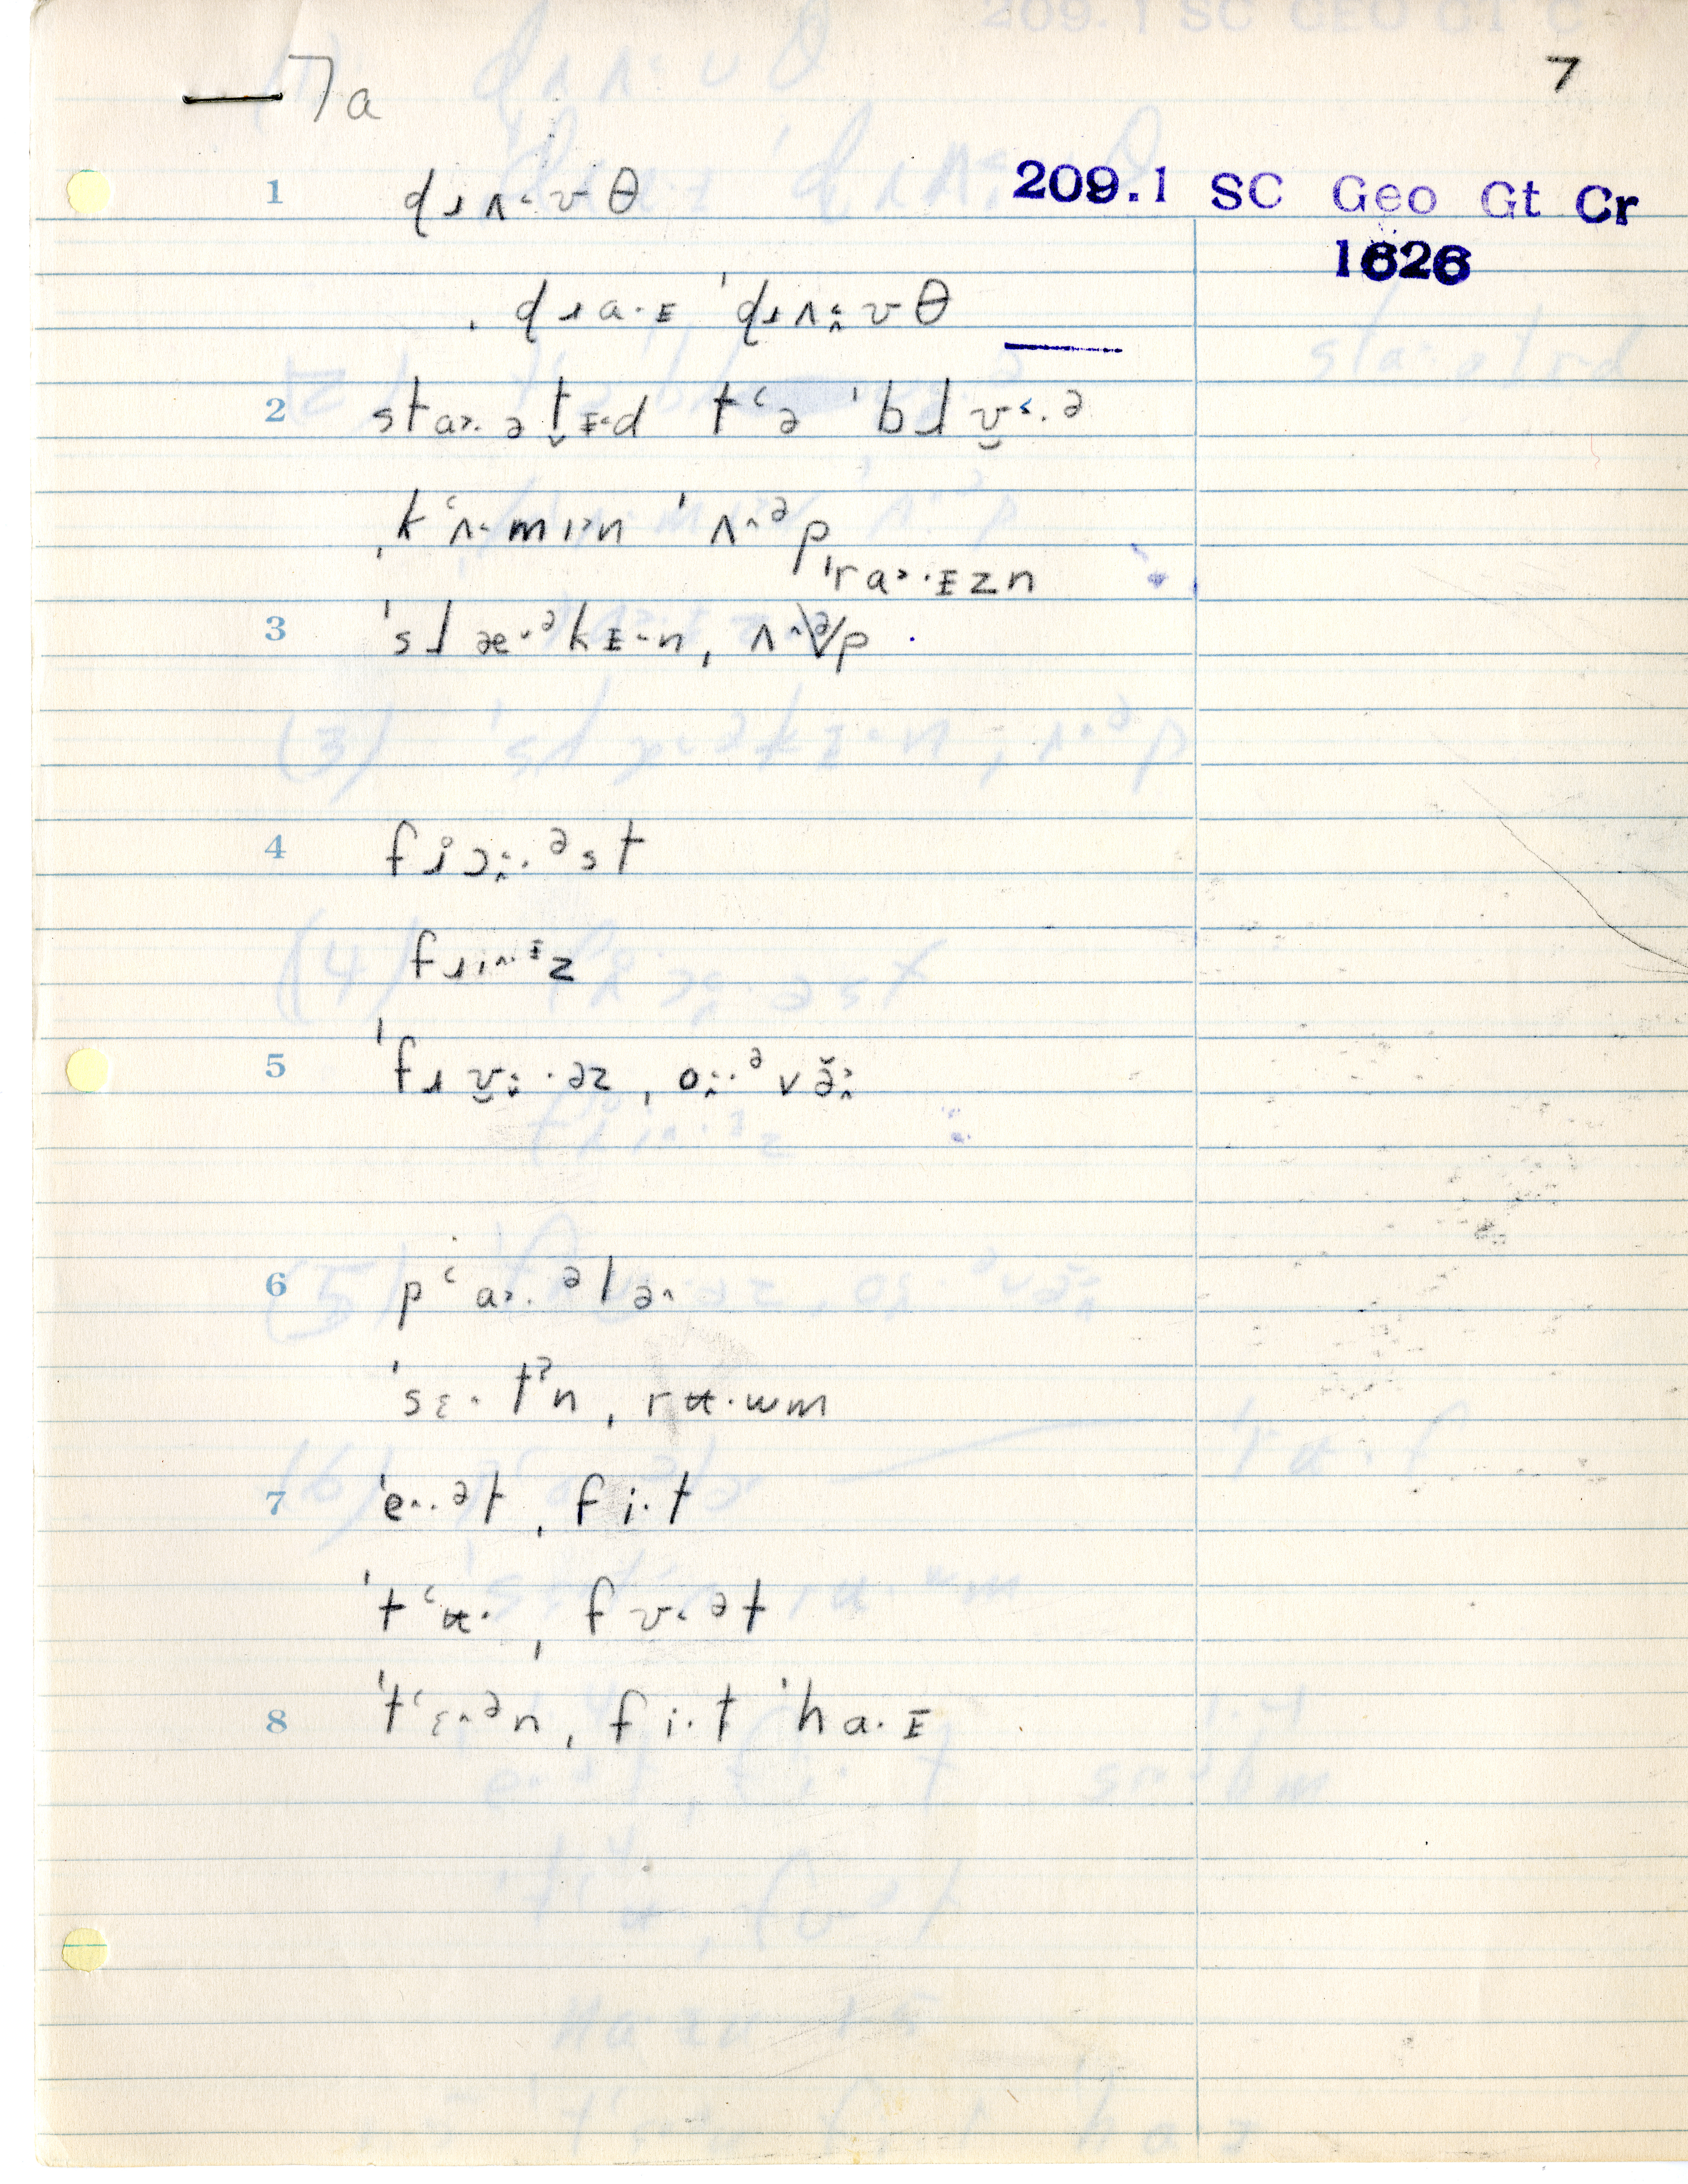 7a
7
209.1 SC Geo Gt Cr
1626
1 dɹʌ˂·ʊθ
ˌdɹa·ɪ ˈdɹʌ˂·ʊθ
2 sta˃·ətɪ˂d tʻə ˈblʊ˂·ə
ˌkʻʌ·mɪ˃n ˈʌ^ᵊp
ˈra˃·ɪzn
3 ˈslæ·ᵊkɪ·n ˌʌ^p
4 fɹ̥ɔ·ᵊst
fɹi^·ᶦz
5 ˈfɹʊ·əz ˌo·ᵊvə̆
6 pʻa˃·ᵊlə^
ˈsɛ·tˀn ˌrʉ·wm
7 ˈe^·ət ˌfi·t
ˈtʻʉ· ˌfʊ˂ət
8 ˈtʻɛ^ᵊn ˌfi·t ˈha·ɪ